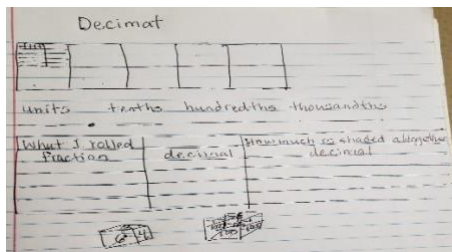 Decimat
units tenths hundredths thousandths
What I rolled fraction decimal How much so shaded altogether decimal
6 4